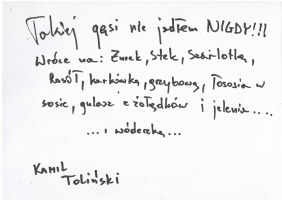 Takiej gęsi nie jadłem NIGDY!!!
Wrócę na: Żurek, Stek, Szarlotkę,
Rosół, karkówkę, grzybową, łososia w
sosie, gulasz z żołądków i jelenia....
... i wódeczkę...
KAMIL
TOLIŃSKI